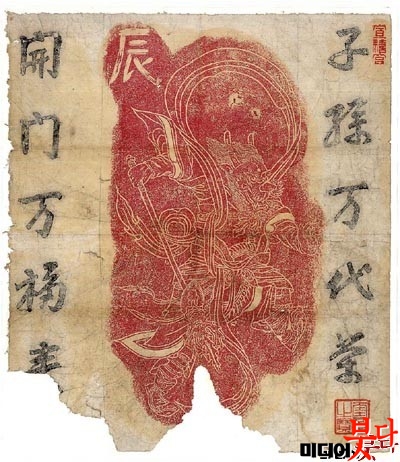 子孫万代荣
辰
開门万福来
미디어붓다